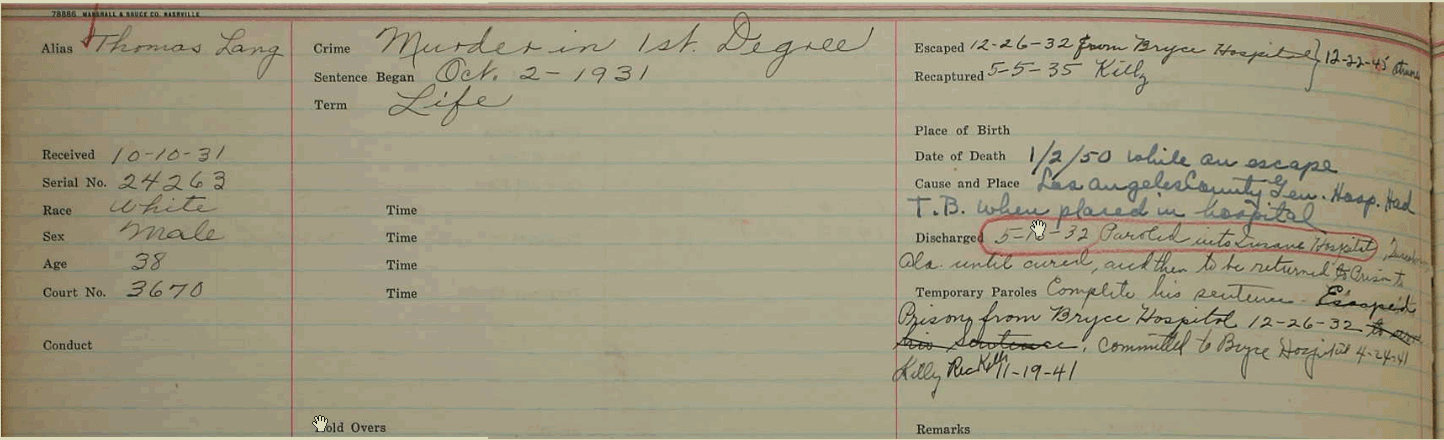 78886 MARSHALL & BRUCE CO. NASHVILLE
Alias Thomas Lang
Received 10-10-31
Serial No. 24263
Race White
Sex Male
Age 38
Court No. 3670
Conduct
Crime Murder in 1st. Degree
Sentence Began Oct. 2-1931
Term Life
Time
Time
Time
Time
Hold Overs
Escaped 12-26-32 from Bryce Hospital} 12-22-45
Recaptured 5-5-35 Kilby
Place of Birth
Date of Death 1/2/50 while on escape
Cause and Place Los Angeles County Gen. Hosp. Had
T.B. when placed in hospital
Discharged 5-18-32 Paroled into Insane Hospital,
Ala. until cured, and then to be returned to Prison to
Temporary Paroles Complete his sentence - Escaped
Prison from Bryce Hospital 12-26-32 to
his Sentence, Committed to Bryce Hospital 4-24-41
Kilby Rec Kilby 11-19-41
Remarks